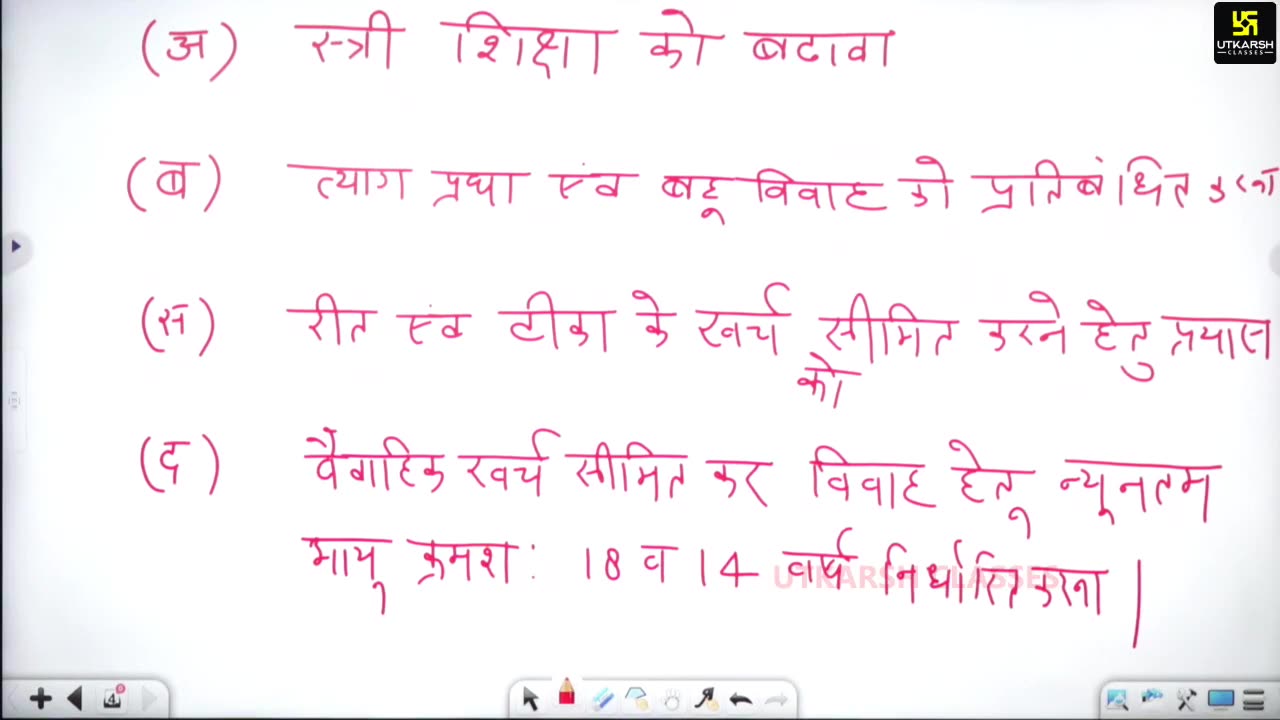 UTKARSH
CLASSES
(अ) स्त्री शिक्षा को बढावा
(ब) त्याग प्रथा एंव बहू विवाह को प्रतिबंधित करना
(स) रीत एंव टीका के खर्च सीमित करने हेतु प्रयास
को
(द) वैवाहिक खर्च सीमित कर विवाह हेतू न्यूनतम
आयू क्रमश: 18 व 14 वर्ष निर्धारित करना |
UTKARSH CLASSES
4